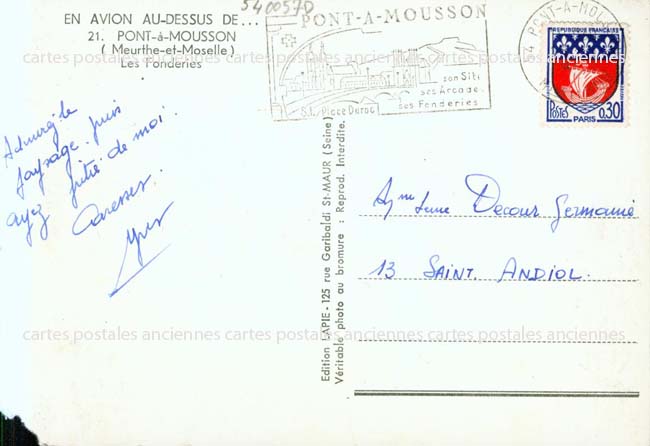 EN AVION AU-DESSUS DE...
21. PONT-à-MOUSSON
( Meurthe-et-Moselle )
Les Fonderies
540057D
PONT-A-MOUSSON
son Site
ses Arcades
ses Fonderies
S.I. Place Duroc
PONT-A-MOU
REPUBLIQUE FRANÇAISE
POSTES 0,30
PARIS
Admirez le
paysage, puis
ayez pitié de moi!
Caresses.
Edition LAPIE - 125 rue Garibaldi St-MAUR (Seine)
Véritable photo au bromure - Reprod. Interdite.
Decour Germaine
13 SAINT. ANDIOL.
cartes postales anciennes cartes postales anciennes cartes postales anciennes
cartes postales anciennes cartes postales anciennes cartes postales anciennes